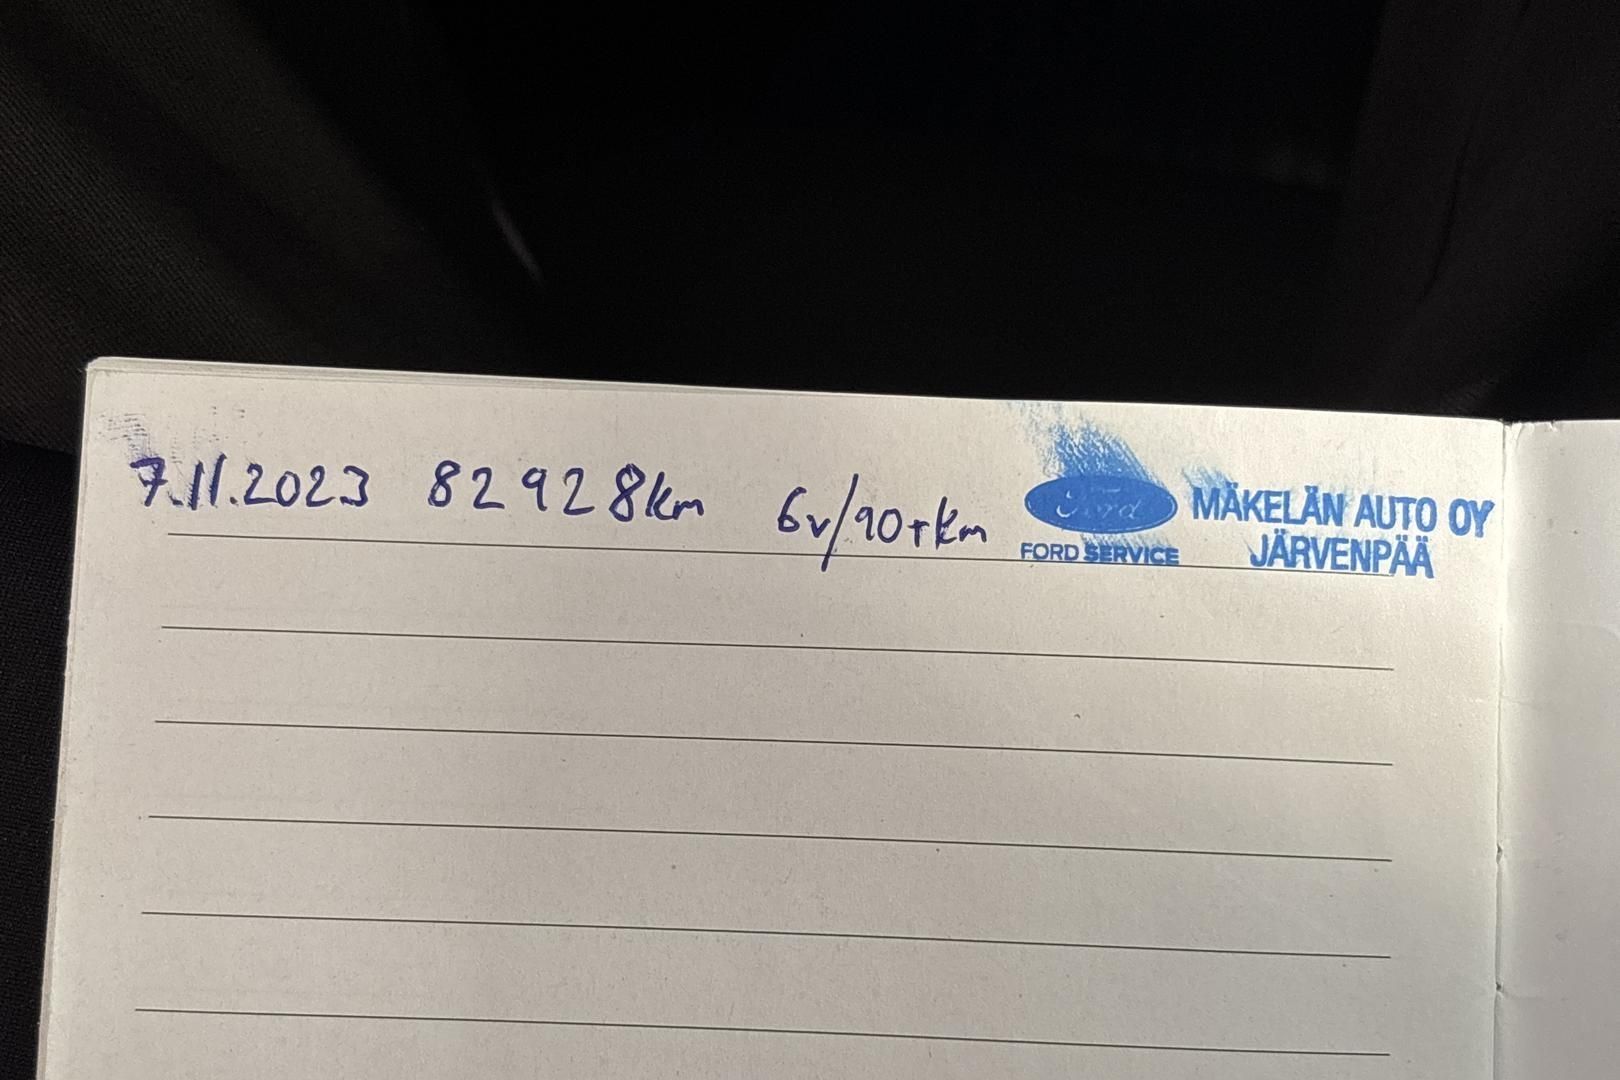 7.11.2023 82928km 6v/90tkm Ford MÄKELÄN AUTO OY
FORD SERVICE JÄRVENPÄÄ